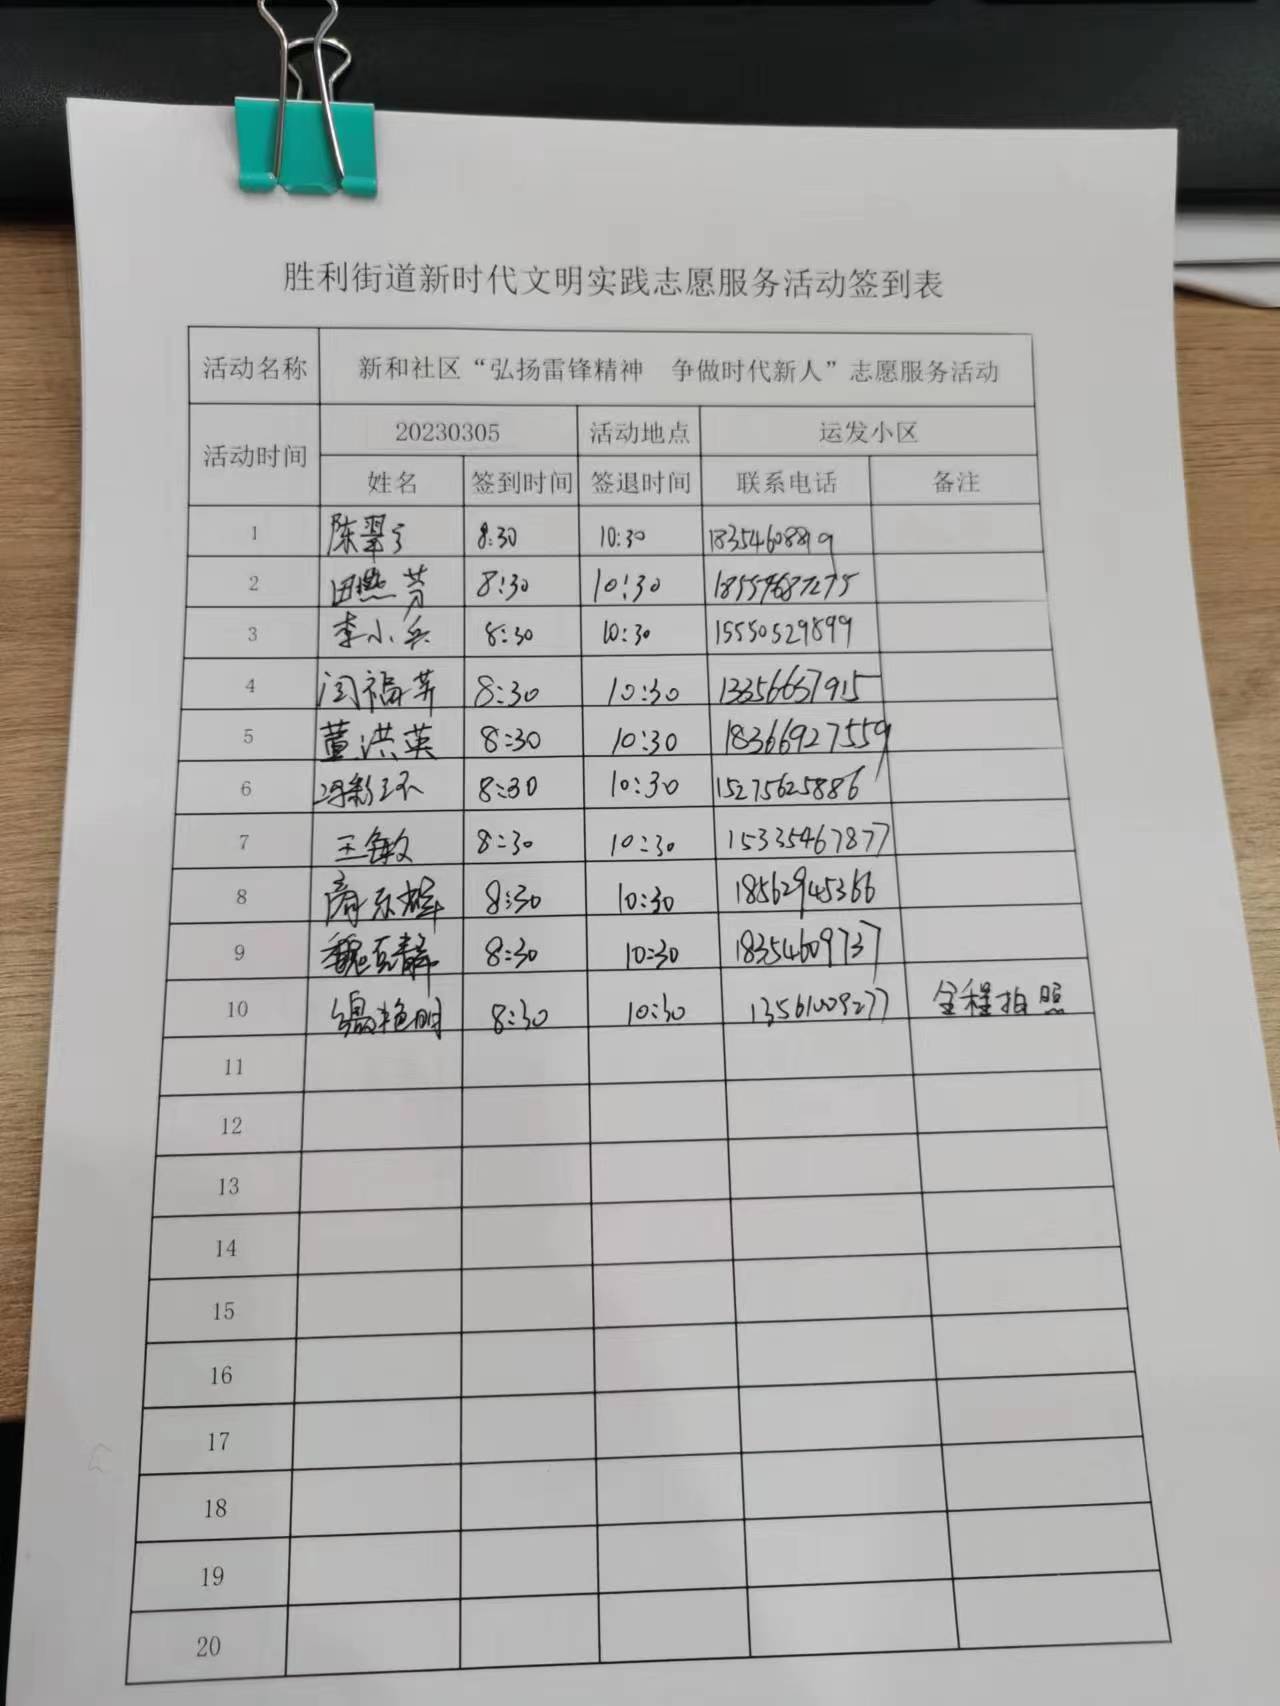 胜利街道新时代文明实践志愿服务活动签到表
活动名称 新和社区“弘扬雷锋精神 争做时代新人”志愿服务活动
活动时间 20230305 活动地点 运发小区
姓名 签到时间 签退时间 联系电话 备注
1 陈翠 8:30 10:30 18354608819
2 田燕芳 8:30 10:30
3 李小兵 8:30 10:30 15550529899
4 闫福英 8:30 10:30 13356637915
5 董洪英 8:30 10:30 18366927559
6 冯彩环 8:30 10:30 15275625886
7 王敏 8:30 10:30 15335467877
8 8:30 10:30 18562945366
9 魏 静 8:30 10:30 18354609737
10 艳明 8:30 10:30 13561009277 全程拍照
11
12
13
14
15
16
17
18
19
20